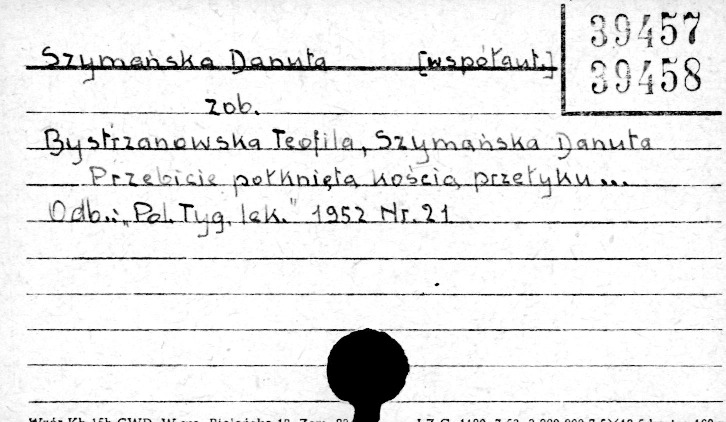 39457
Szymańska Danuta [współaut.]
39458
zob.
Bystrzanowska Teofila, Szymańska Danuta
Przebicie połkniętą kością przełyku...
Odb.: „Pol. Tyg. lek." 1952 Nr. 21